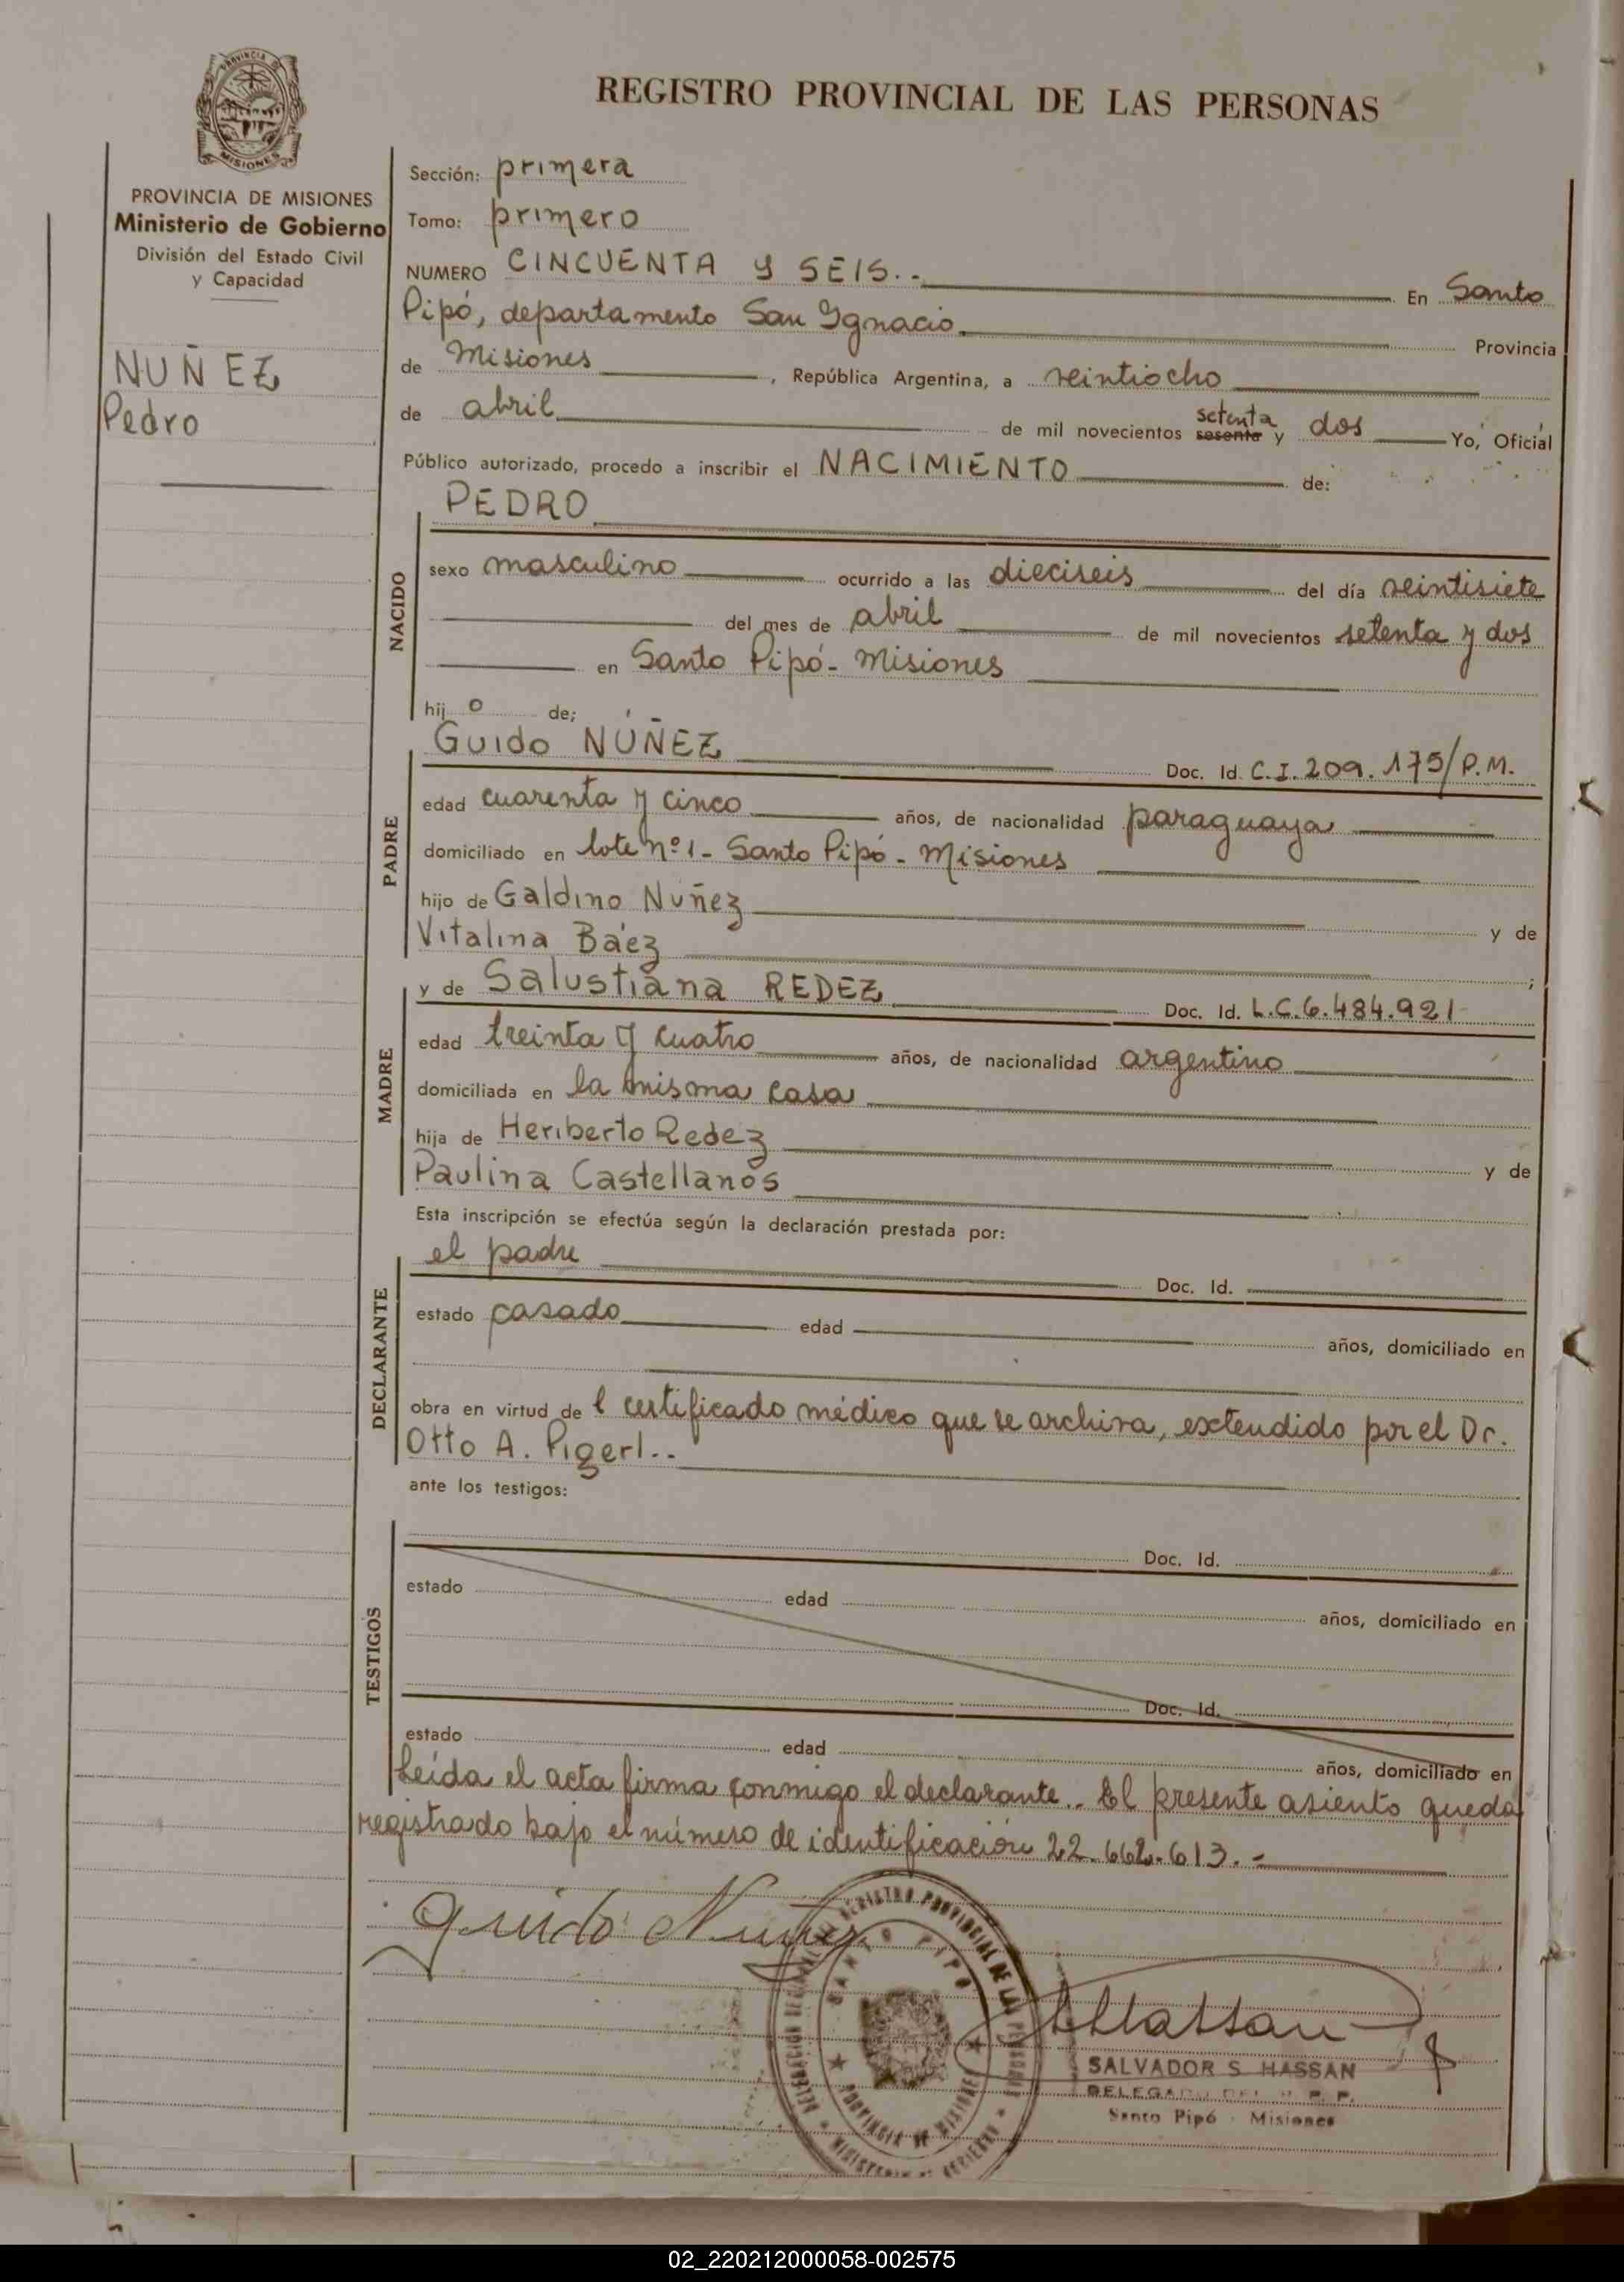 PROVINCIA DE
MISIONES
PROVINCIA DE MISIONES
Ministerio de Gobierno
División del Estado Civil
y Capacidad
NUÑEZ
Pedro
REGISTRO PROVINCIAL DE LAS PERSONAS
Sección: primera
Tomo: primero
NUMERO CINCUENTA y SEIS.- En Santo
Pipó, departamento San Ignacio Provincia
de Misiones, República Argentina, a veintiocho
de abril de mil novecientos sesenta setenta y dos Yo, Oficial
Público autorizado, procedo a inscribir el NACIMIENTO de:
NACIDO
PEDRO
sexo masculino ocurrido a las dieciseis del día veintisiete
del mes de abril de mil novecientos setenta y dos
en Santo Pipó - Misiones
hijo de;
PADRE
Guido NÚÑEZ Doc. Id. C.I. 209.175/P.M.
edad cuarenta y cinco años, de nacionalidad paraguaya
domiciliado en lote nº 1 - Santo Pipó - Misiones
hijo de Galdino Nuñez y de
Vitalina Báez;
MADRE
y de Salustiana REDEZ Doc. Id. L.C. 6.484.921
edad treinta y cuatro años, de nacionalidad argentino
domiciliada en la misma casa
hija de Heriberto Redez y de
Paulina Castellanos
Esta inscripción se efectúa según la declaración prestada por:
DECLARANTE
el padre Doc. Id.
estado casado edad años, domiciliado en
obra en virtud de l certificado médico que se archiva, extendido por el Dr.
Otto A. Pigerl.-
ante los testigos:
TESTIGOS
Doc. Id.
estado edad años, domiciliado en
Doc. Id.
estado edad años, domiciliado en
Leída el acta firma conmigo el declarante.. El presente asiento queda
registrado bajo el número de identificación 22.662.613.-
Guido Nuñez
REGISTRO PROVINCIAL DE LAS PERSONAS
SANTO PIPÓ
PROVINCIA DE MISIONES
MINISTERIO DE GOBIERNO
SALVADOR S. HASSAN
DELEGADO DEL R. P. P.
Santo Pipó - Misiones
02_220212000058-002575